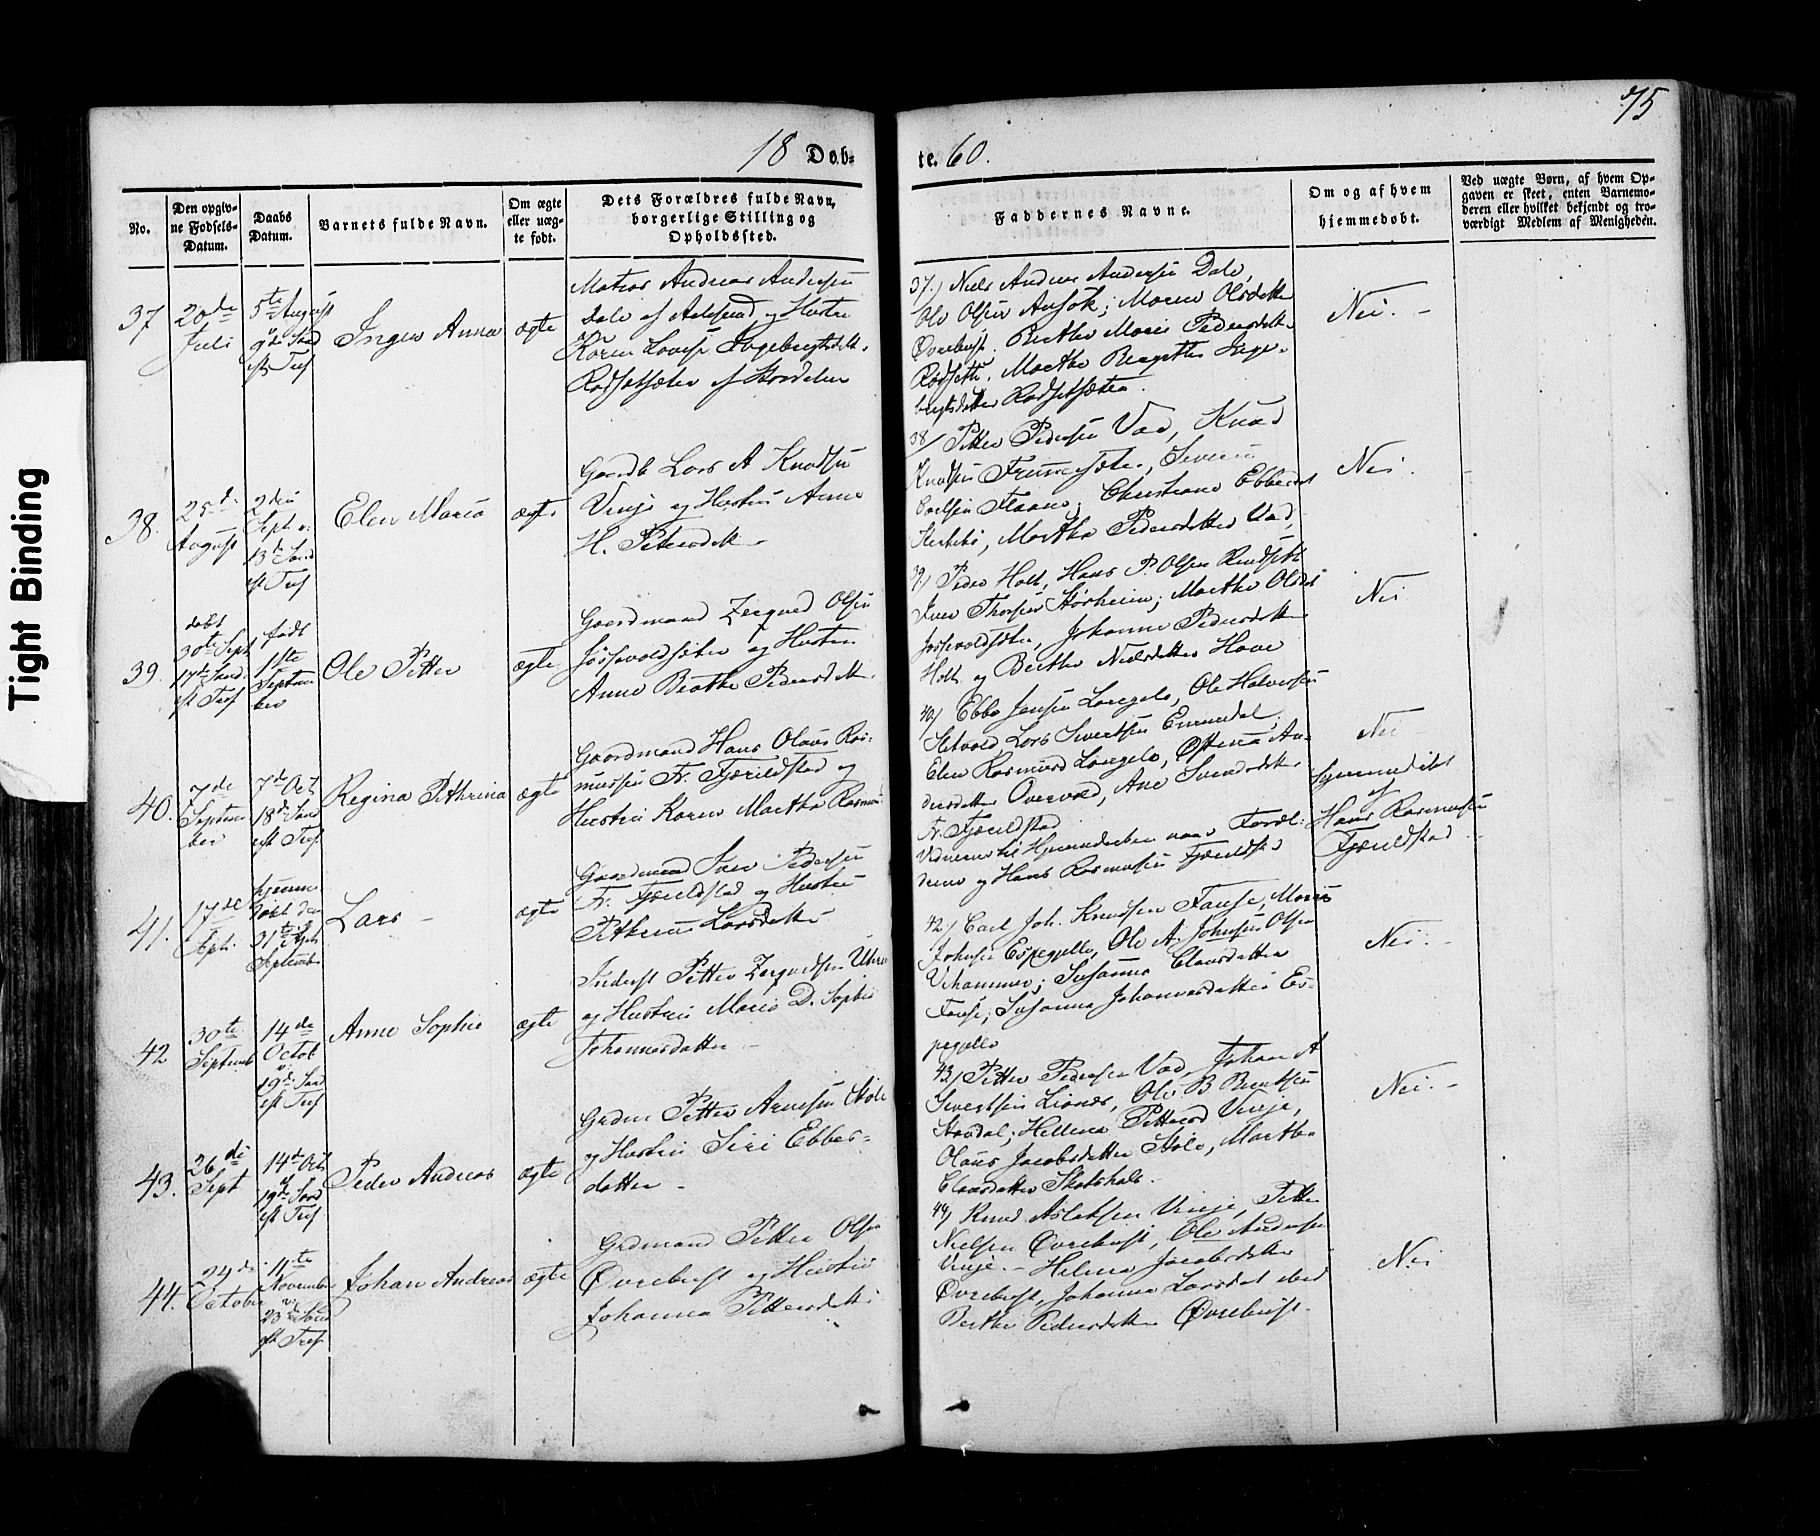 75
18 Døb-
te. 60.
No.
Den opgiv-
ne Fødsels-
Datum.
Daabs
Datum.
Barnets fulde Navn.
Om ægte
eller uæg-
te født.
Dets Forældres fulde Navn,
borgerlige Stilling og
Opholdssted.
Faddernes Navne.
Om og af hvem
hjemmedøbt.
Ved uægte Børn, af hvem Op-
gaven er skeet, enten Barnemo-
deren eller hvilket bekjendt og tro-
værdigt Medlem af Menigheden.
37
20de
Juli
5te August
9de Sønd
eft Tref
Inger Anna
ægte
Matros Andreas Andersen
Dale af Aalesund og Hustru
Karen Lovise Ingebregtsdatt.
Rødsetsæter af Stordalen
37.) Niels Andreas Andersen Dale,
Ole Olsen Ansok; Maren Olsdatter
Øvrebust. Berthe Marie Pedersdatter
Rødsette. Marthe Bergitte Inge-
bregtsdatter Rødsetsæter.
Nei. -
38.
25de
August
2den
Sept.
13de Sønd
eft Tref
Elen Maria
ægte
Gaardb Lars A Knudsen
Vinje og Hustru Anne
H. Petersdatt
38/ Petter Pedersen Vad, Knud
Knudsen
Carlsen
Martha Pedersdatter Vad,
Nei.
39.
døbt
30te Sept
17de Sønd.
eft Tref
født
1ste
Septem
ber
Ole Petter
ægte
Gaardmand Olsen
og Hustru
Anne Berthe Pedersdatt.
39.) Peder Holt, Hans P. Olsen
Iver Martha Olsdt
Johanne Pedersdatter
Holt og Berthe Nielsdatter Hove
Nei
40.
7de
Septem
ber
7de Oct
18de Sønd
eft Tref.
Regina Pethrina
ægte
Gaardmand Hans Olaus Ras-
mussen Fr. Fjærildstad og
Hustru Karen Martha Rasmus
40/ Ebbe Jensen Langelo, Ole Halvorsen
Lars Sivertsen Emmedal,
Elen Rasmusd Langelo, An-
dersdatter Overvold, Ane Svendsdatter
Fr. Fjærildstad
Nei
41.
17de
Sept.
hjemme
døbt den
September
Lars -
ægte
Gaardmand Iver Pedersen
Fr. Fjærildstad og Hustru
Pethrine Larsdatter
Vidnerne til Hjemmedaaben vare Foræl-
drene og Hans Rasmusen Fjærildstad
hjemmedøbt
af
Hans Rasmusen
Fjærildstad
42
30te
Septemb
14de
Octob
19de Sønd
eft Tref
Anne Sophie
ægte
Inderst Petter
og Hustru Maria D. Sophie
Johannesdatter -
42/ Carl Joh. Knudsen Fause, Marie
Johnsen Espegjelle, Ole A. Johnsen Olsen
Vihammer; Susanna Clausdatter
Fause; Susanna Johannesdatter Es-
pegjelle
Nei. -
43.
26de
Sept
14de Oct
19de Sønd
eft Tref
Peder Andreas
ægte
Grdm Petter Arnesen Stole
og Hustru Siri Ebbes-
datter -
43/ Petter Pedersen Vad, Johan A
Sivertsen Liones, Ole B Berntsen
Stavdal; Hellene Pettersd Vinje,
Olaus Jacobsdatter Stole, Martha
Clausdatter
Nei. -
44.
24de
October
11te
November
23de Sønd
eft Tref.
Johan Andreas
ægte
Grdmand Petter Olsen
Øvrebust og Hustru
Johanna Pettersdatter
44/ Knud Aslaksen Vinje, Petter
Nielsen Øvrebust, Ole Andersen
Vinje. - Helena Jacobsdatter
Øvrebust, Johanna Larsdat ibid
Berthe Pedersdatter Øvrebust.
Nei
Tight Binding